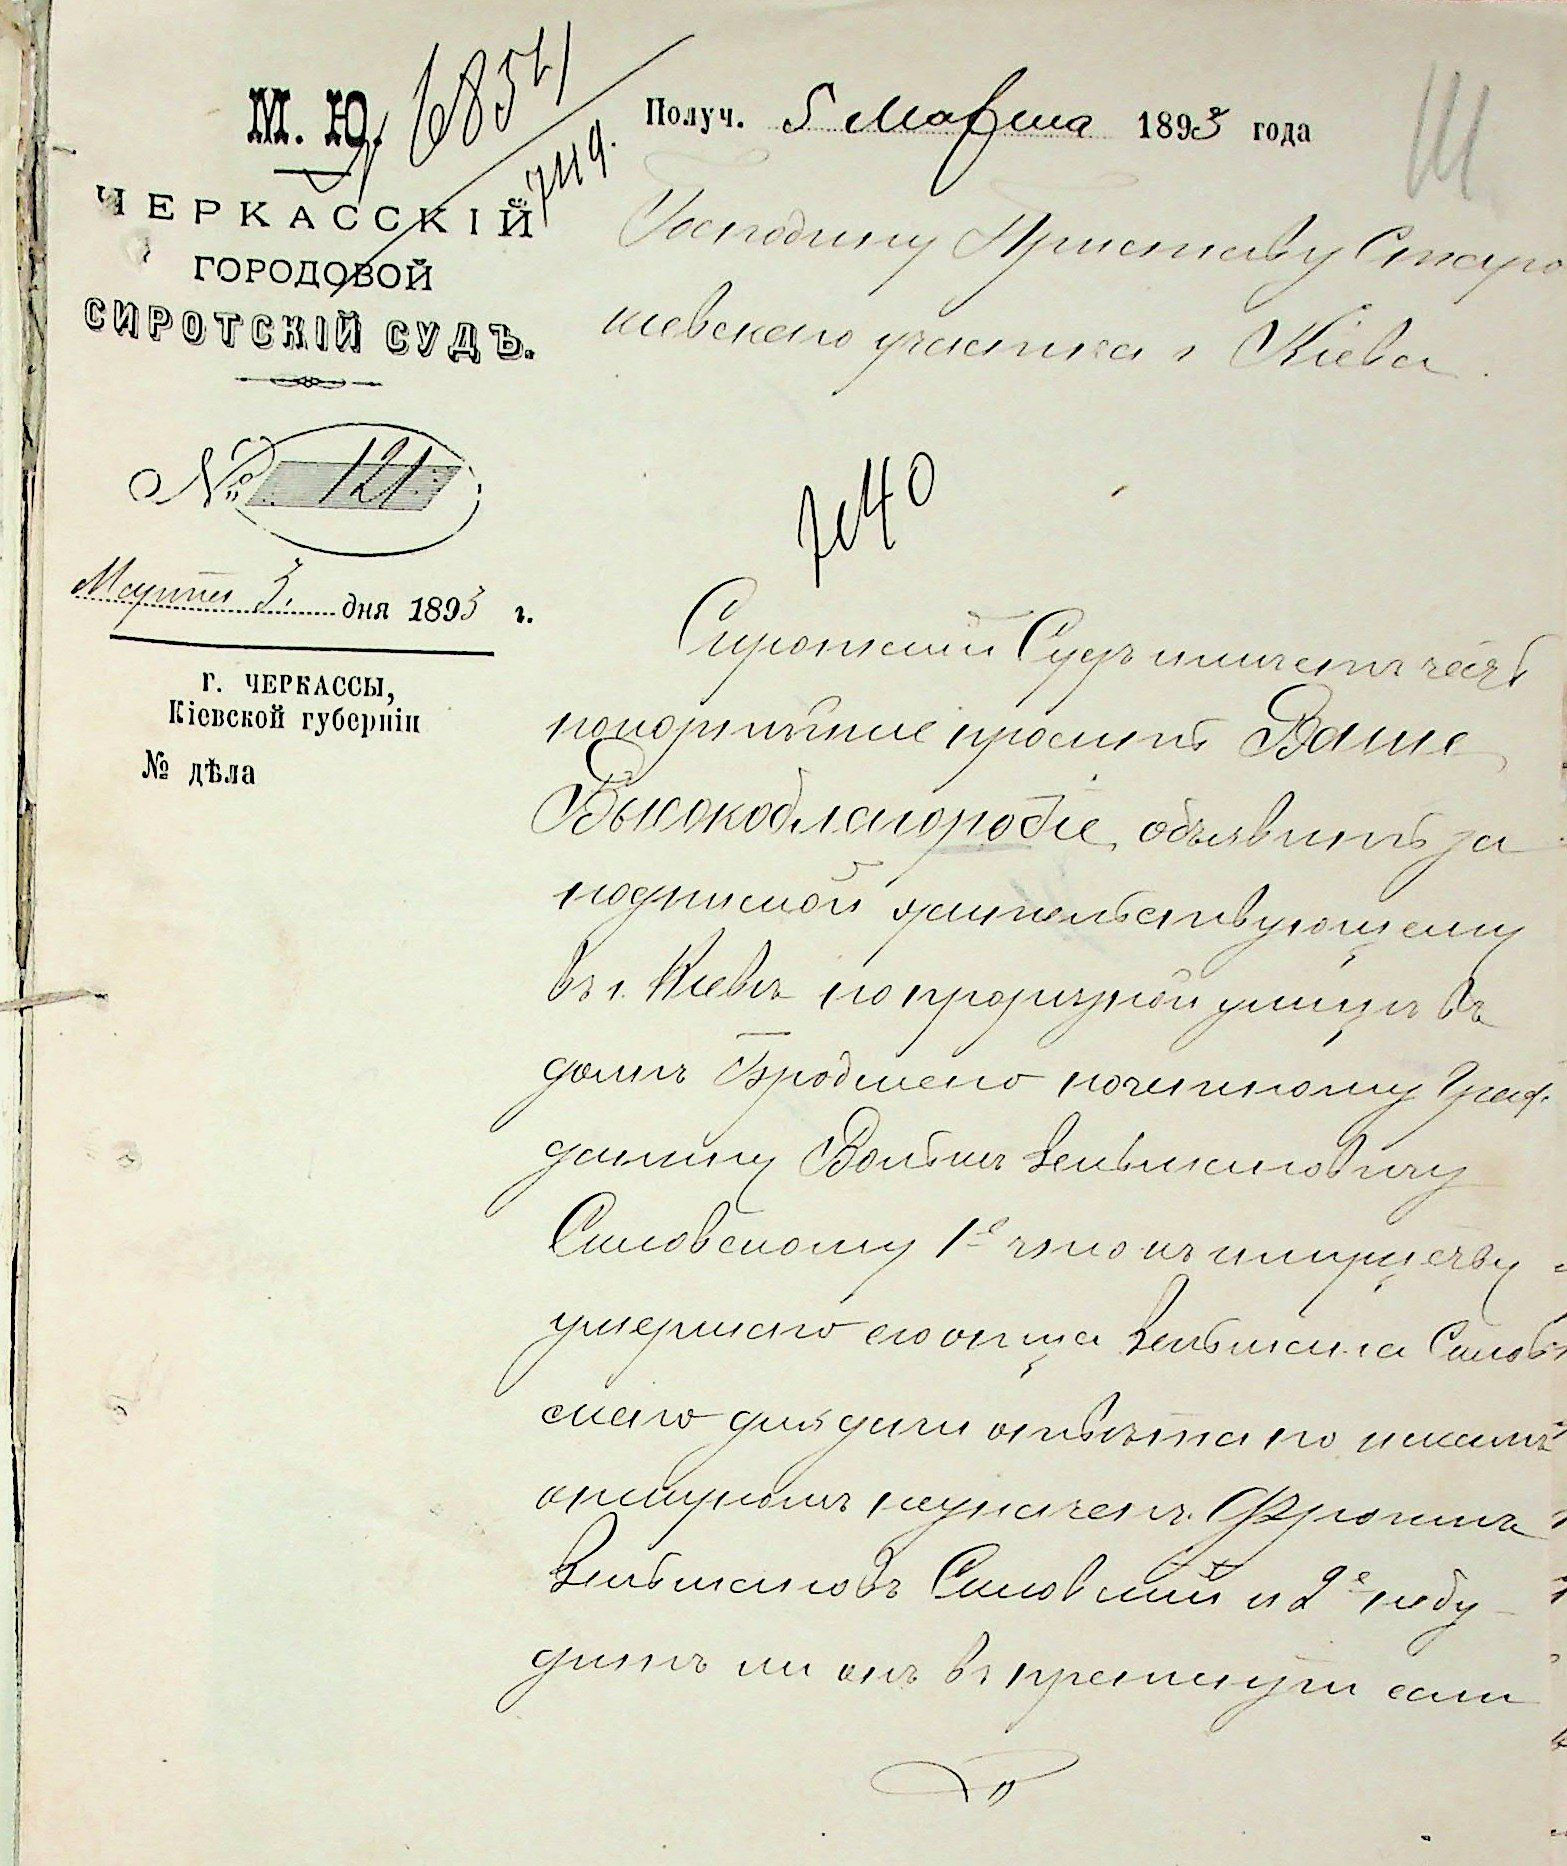 М. Ю.
6854
7419.
ЧЕРКАССКІЙ
ГОРОДОВОЙ
СИРОТСКІЙ СУДЪ.
№ 121
Марта 3. дня 1893 г.
г. ЧЕРКАССЫ,
Кіевской губерніи
№ дѣла
Получ. 5 Марта 1893 года
Господину Приставу Старо
кіевскаго участка г Кіева.
Сиротскій Судъ имѣетъ честь
покорнѣйше просить Ваше
Высокоблагородіе, объявить за
подпиской жительствующему
въ г. Кіевѣ по прорѣзной улицѣ въ
домѣ Бродскаго почетному Граж
данину Вольфу Зельмановичу
Смовскому 1е что къ имуществу
умершаго его отца Зельмана Смов
скаго для дачи отвѣта по искамъ
опекуномъ назначенъ
Зельмановъ Смовскій и 2е не бу
дитъ ли онъ въ претензіи если